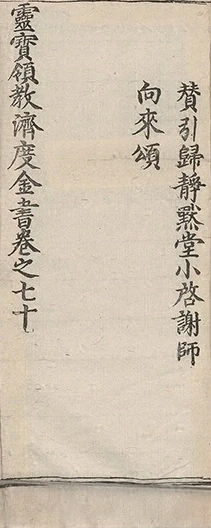 賛引歸靜黙堂小啓謝師
向來頌
靈寳領教濟度金書卷之七十